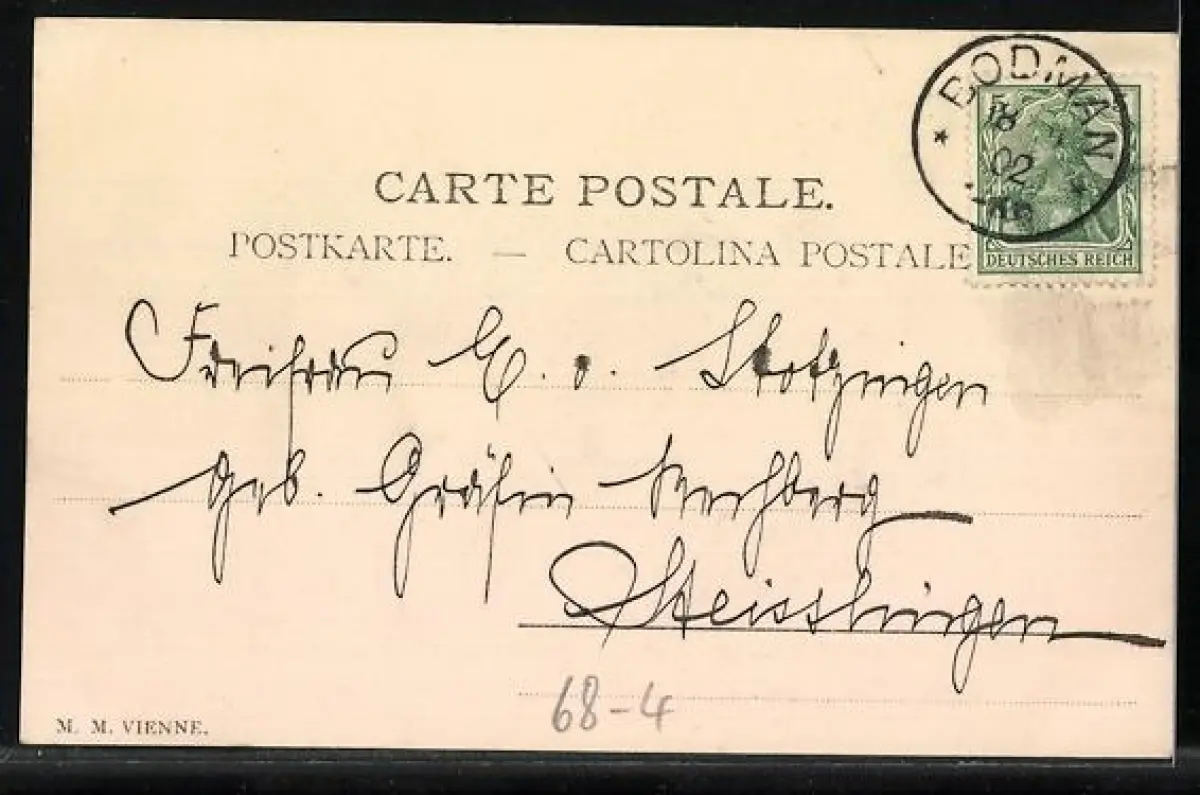 BODMAN
5 8
02
DEUTSCHES REICH
CARTE POSTALE.
POSTKARTE. — CARTOLINA POSTALE
Freifrau E. v. Stotzingen
geb. Gräfin Rechberg
Steisslingen
68-4
M. M. VIENNE.